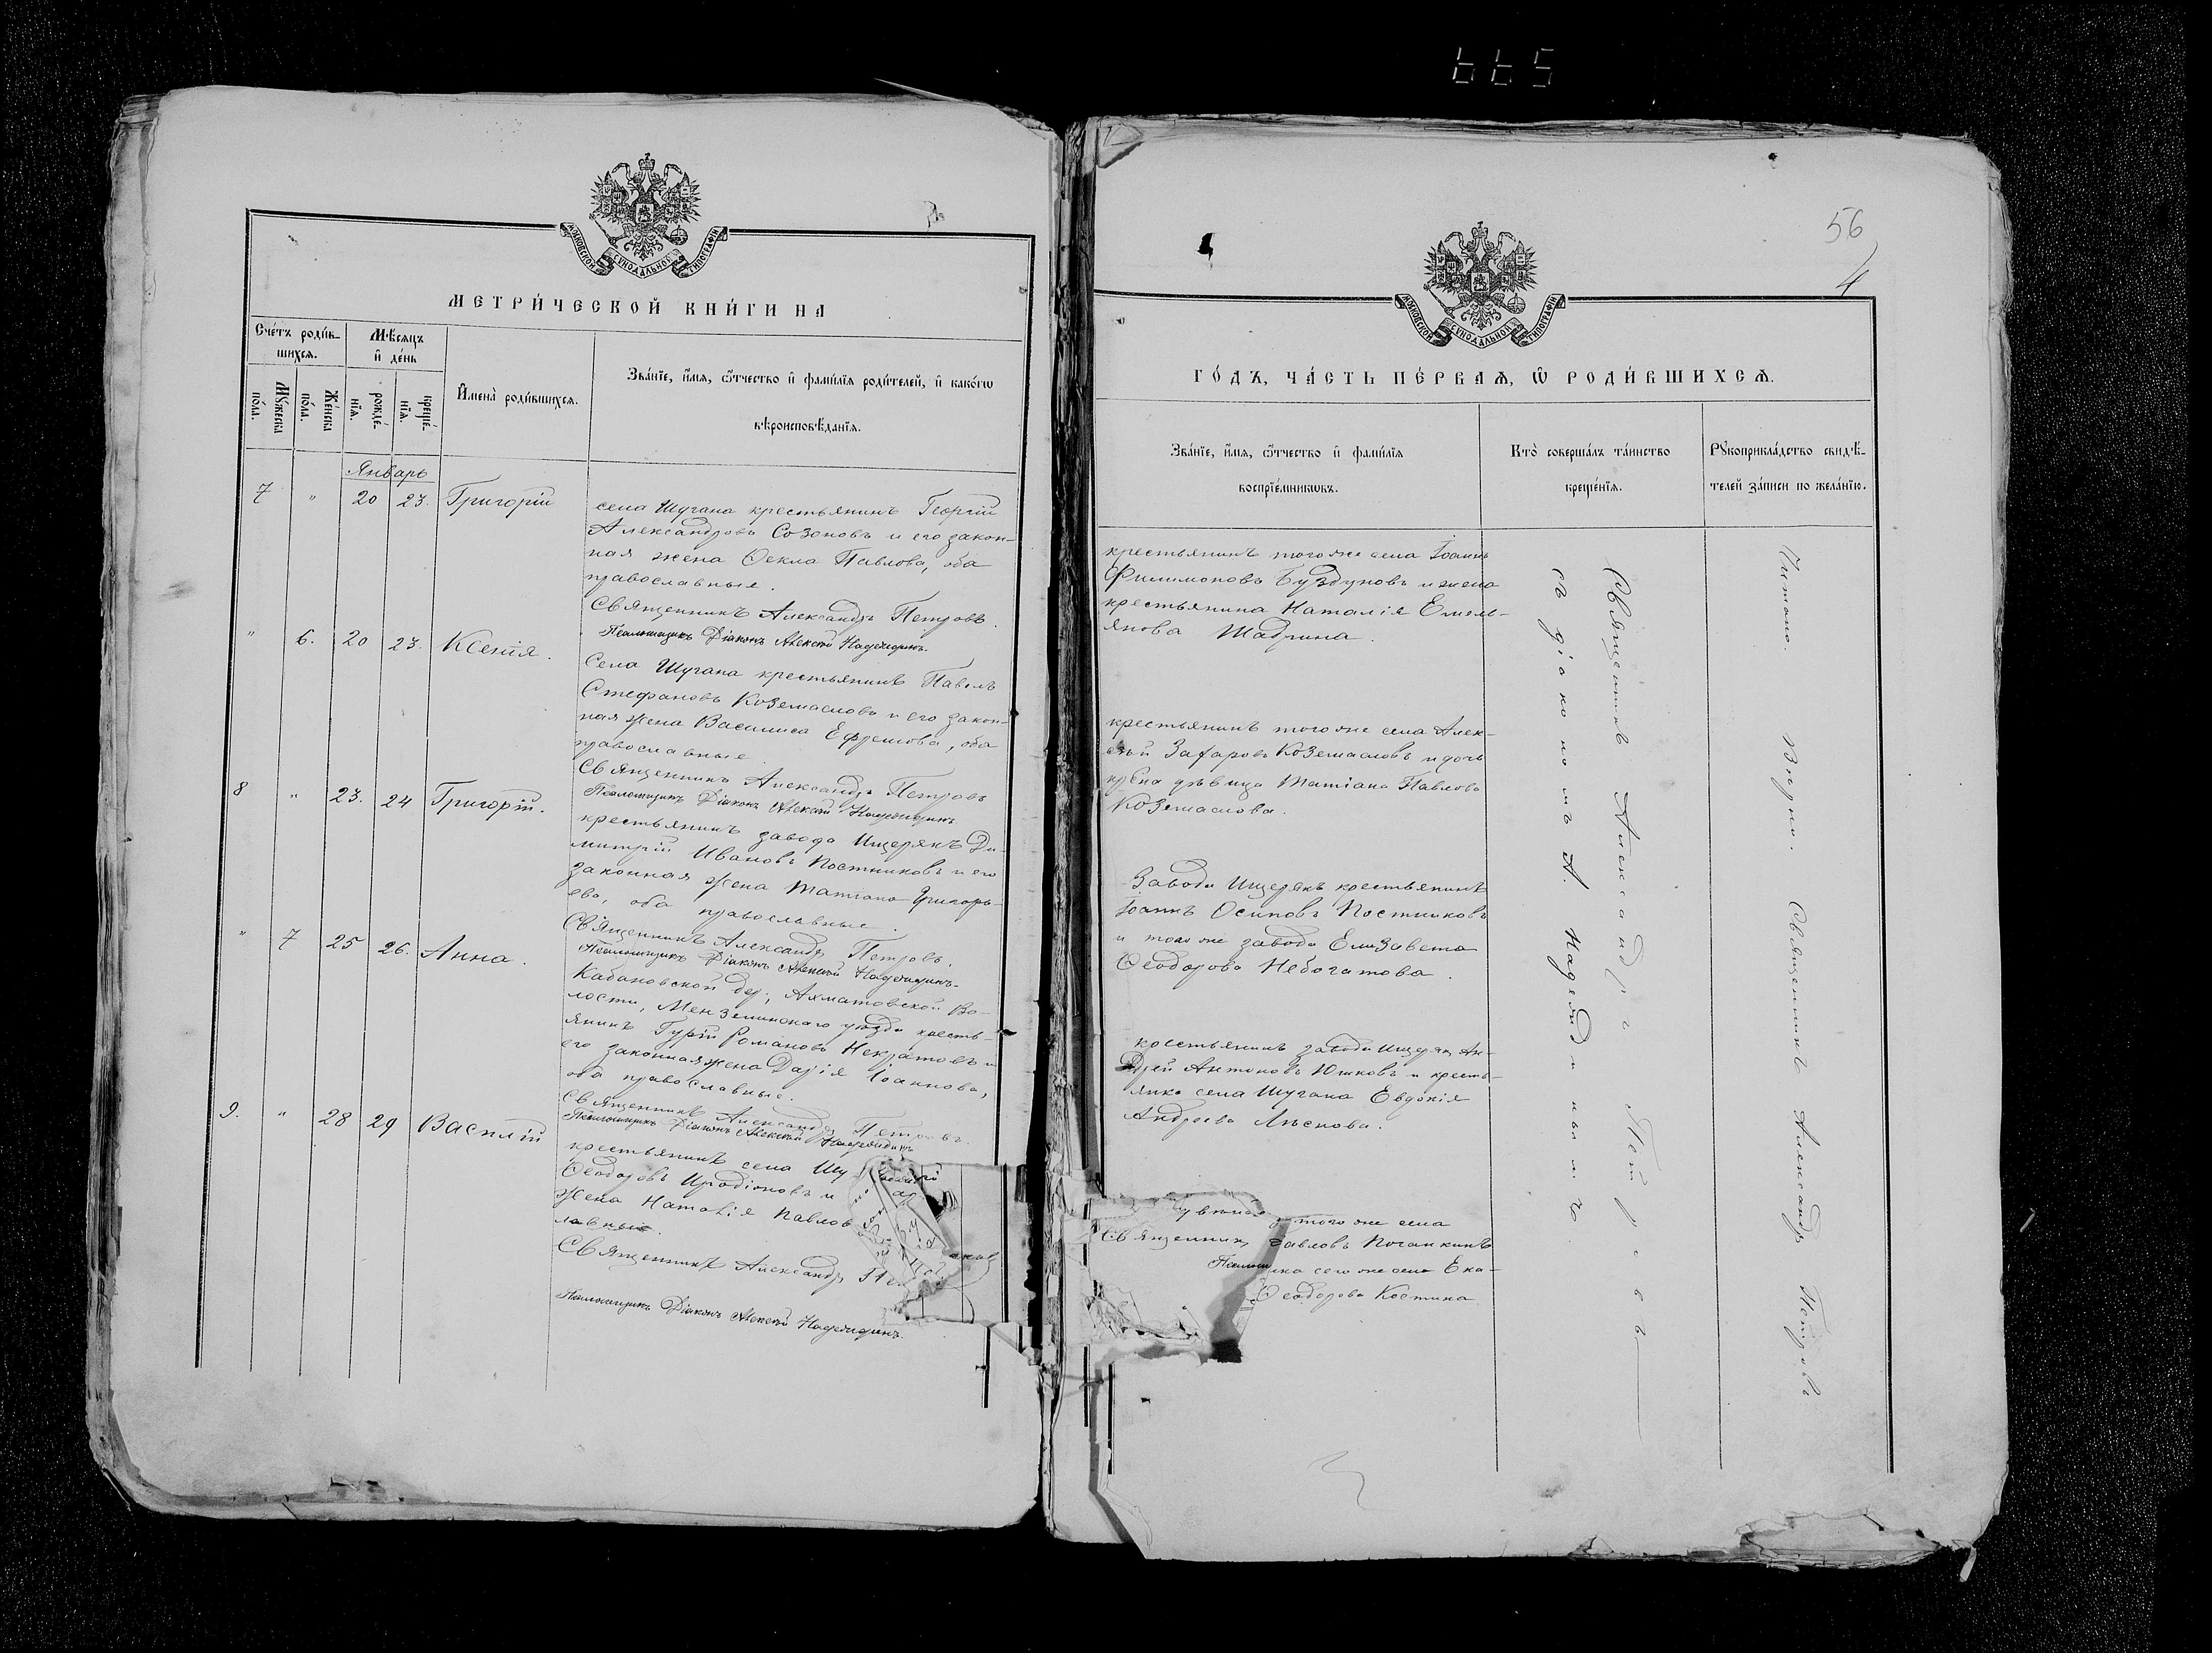 МОСКОВСКОЙ СѴНОДАЛЬНОЙ ТИПОГРАФІИ
МЕТРИ́ЧЕСКОЙ КНИ́ГИ НА
Сче́тъ роди́в-
шихся.
Мѣсяцъ
и҆ де́нь
Мꙋ́жеска
по́ла.
Же́нска
по́ла.
рожде́-
нїя.
креще́-
нїя.
И҆мена̀ роди́вшихся.
Зва́нїе, и҆́мя, ѻ҆́тчество и҆ фами́лїя роди́телей, и҆ како́гѡ
вѣроисповѣ́данїя.
Январь
7 " 20 23. Григорій
села Шугана крестьянинъ Георгій
Александровъ Созоновъ и его закон-
ная жена Ѳекла Павлова, оба
православные.
Священникъ Александръ Петровъ.
Псаломщикъ Діаконъ Алексѣй Надеждинъ.
" 6. 20 23. Ксенія.
Села Шугана крестьянинъ Павелъ
Стефановъ Коземасловъ и его закон-
ная жена Василиса Ефремова, оба
православные
Священникъ Александръ Петровъ
Псаломщикъ Діаконъ Алексѣй Надеждинъ
8 " 23. 24 Григорій.
крестьянинъ завода Ищерякъ Ди-
митрій Ивановъ Постниковъ и его
законная жена Татіана Григорь-
ева, оба православные.
Священникъ Александръ Петровъ.
Псаломщикъ Діаконъ Алексѣй Надеждинъ.
" 7 25 26. Анна.
Кабановской дер., Ахматовской Во-
лости, Мензелинскаго уѣзда кресть-
янинъ Гурій Романовъ Некратовъ и
его законная жена Дарія Іоаннова,
оба православные.
Священникъ Александръ Петровъ.
Псаломщикъ Діаконъ Алексѣй Надеждинъ
9. " 28 29 Василій
крестьянинъ села Шу
Ѳеодоровъ Иродіоновъ и
жена Наталія Павлов
лавные.
Священникъ Александръ Пет
Псаломщикъ Діаконъ Алексѣй Надеждинъ.
56
4
МОСКОВСКОЙ СѴНОДАЛЬНОЙ ТИПОГРАФІИ
ГО́ДЪ, ЧА́СТЬ ПЕ́РВАЯ, Ѡ҆ РОДИ́ВШИХСЯ.
Зва́нїе, и҆́мя, ѻ҆́тчество и҆ фами́лїя
воспрїе́мникѡвъ.
Кто̀ соверша́лъ та́инство
креще́нїя.
Рꙋкоприкла́дство свидѣ́-
телей за́писи по жела́нїю.
крестьянинъ того же села Іоаннъ
Филимоновъ Буздуновъ и жена
крестьянина Наталія Емель-
янова Шадрина.
крестьянинъ того же села Алек-
сѣй Захаровъ Коземасловъ и дочь
дѣвица Татіана Павлова
Коземаслова.
Завода Ищерякъ крестьянинъ
Іоаннъ Осиповъ Постниковъ
и того же завода Елизавета
Ѳеодорова Небогатова.
крестьянинъ завода Ищерякъ Ан-
дрей Антоновъ Юшковъ и кресть-
янка села Шугана Евдокія
Андреева Лѣснова.
того же села
Священник Павловъ Поганкинъ
Псаломщ нка сего же села Ека-
Ѳеодорова Костина
Священникъ Александръ Петровъ
съ діакономъ А. Надеждинымъ.
Читано. Вѣрно. Священникъ Александръ Петровъ